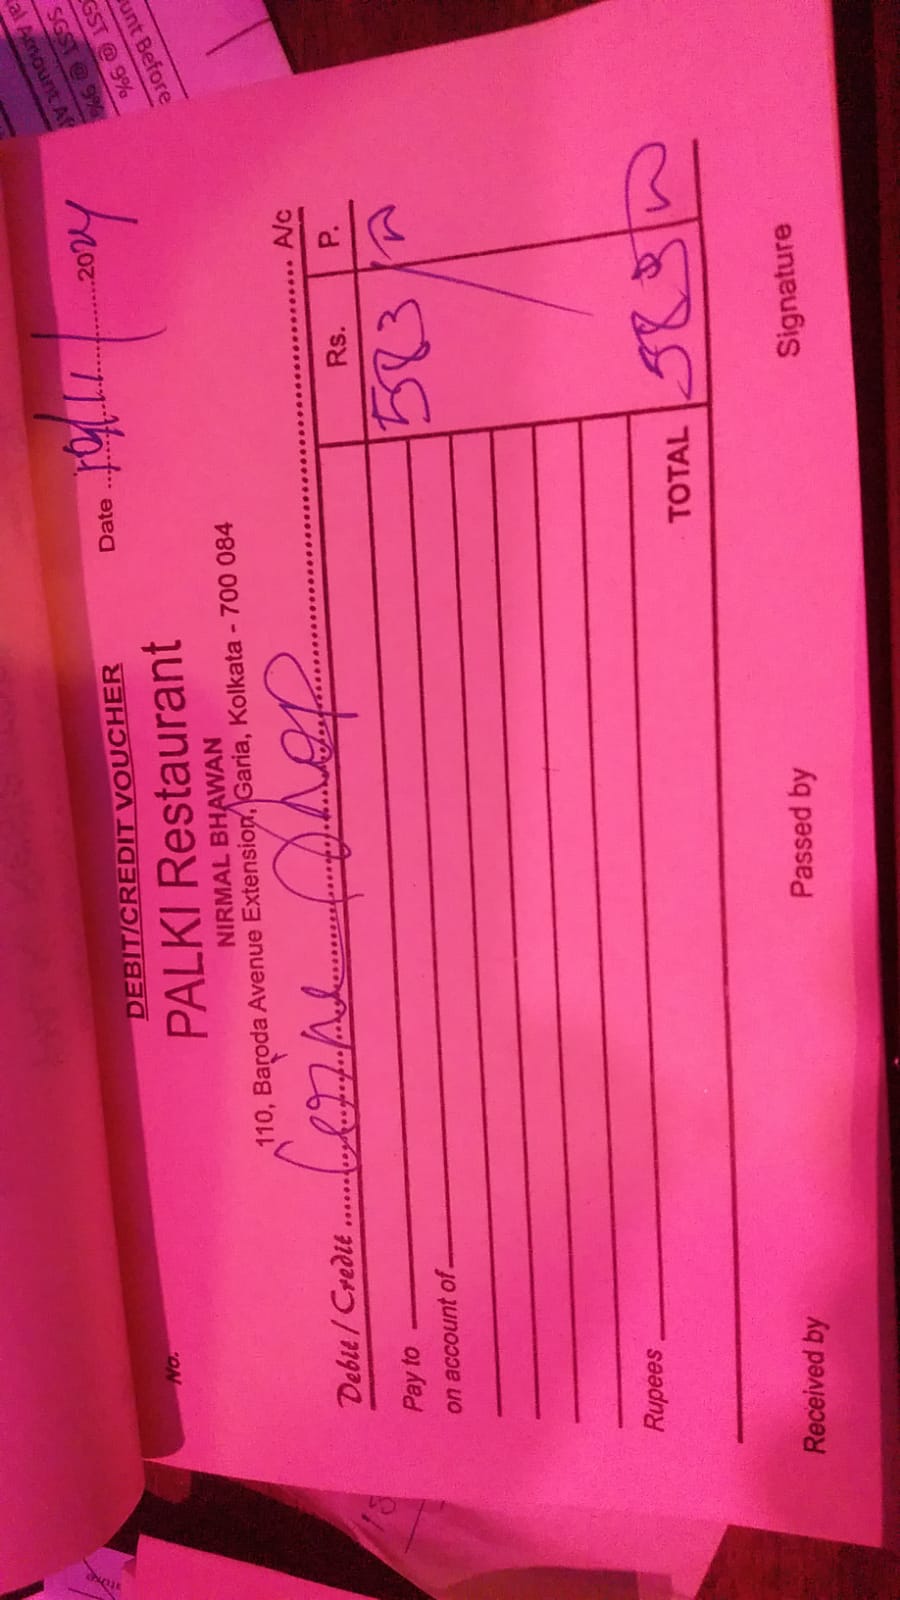 unt Before
GST @ 9%
SGST @ 9%
al Amount Af
DEBIT/CREDIT VOUCHER
No.
Date ...............2024
PALKI Restaurant
NIRMAL BHAWAN
110, Baroda Avenue Extension, Garia, Kolkata - 700 084
Debit / Credit ........................ A/c
Rs. P.
Pay to 583/-
on account of
Rupees
TOTAL 583/-
Received by Passed by Signature